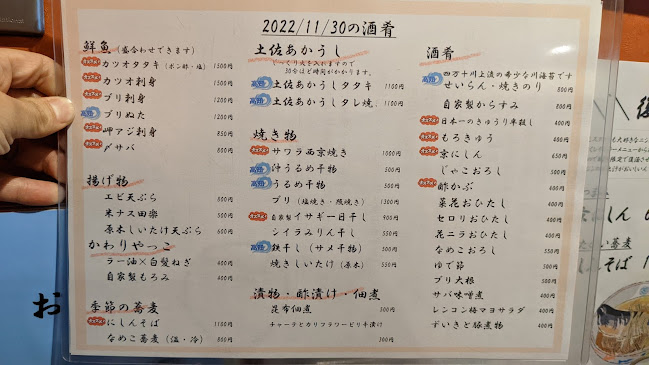 2022/11/30の酒肴
鮮魚 (盛合わせできます)
カツオタタキ (ポン酢・塩) 1500円
カツオ刺身 1500円
ブリ刺身 1200円
高知 ブリぬた 1200円
岬アジ刺身 850円
〆サバ 800円
揚げ物
エビ天ぷら 800円
米ナス田楽 500円
原木しいたけ天ぷら 600円
かわりやっこ
ラー油×白髪ねぎ 400円
自家製もろみ 400円
季節の蕎麦
にしんそば 1100円
なめこ蕎麦 (温・冷) 800円
土佐あかうし
じっくり火を入れますので
30分ほど時間がかかります。
高知 土佐あかうしタタキ 1100円
高知 土佐あかうしタレ焼 1100円
焼き物
サワラ西京焼き 1000円
高知 沖うるめ干物 500円
高知 うるめ干物 500円
ブリ (塩焼き・照焼き) 1300円
自家製 イサギ一日干し 900円
シイラみりん干し 500円
高知 鉄干し (サメ干物) 500円
焼きしいたけ (原木) 550円
漬物・酢漬け・佃煮
昆布佃煮 300円
チャーテとカリフラワーピリ辛漬け
300円
酒肴
高知 四万十川上流の希少な川海苔です
せいらん・焼きのり 800円
自家製からすみ 800円
日本一のきゅうり串刺し 400円
もろきゅう 400円
京にしん 650円
じゃこおろし 500円
酢かぶ 400円
菜花おひたし 400円
セロリおひたし 400円
花ニラおひたし 400円
なめこおろし 550円
ゆで節 400円
ブリ大根 400円
サバ味噌煮 400円
レンコン梅マヨサラダ 400円
ずいきと豚煮物 400円